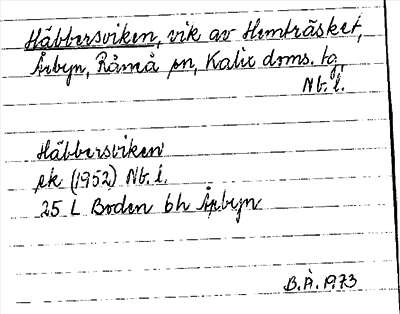 Häbbersviken, vik av Hemträsket,
Årbyn, Råneå sn, Kalix doms. tg,
Nb. l.
Häbbersviken
ek (1952) Nb. l.
25 L Boden 6h Årbyn
B.Å. 1973